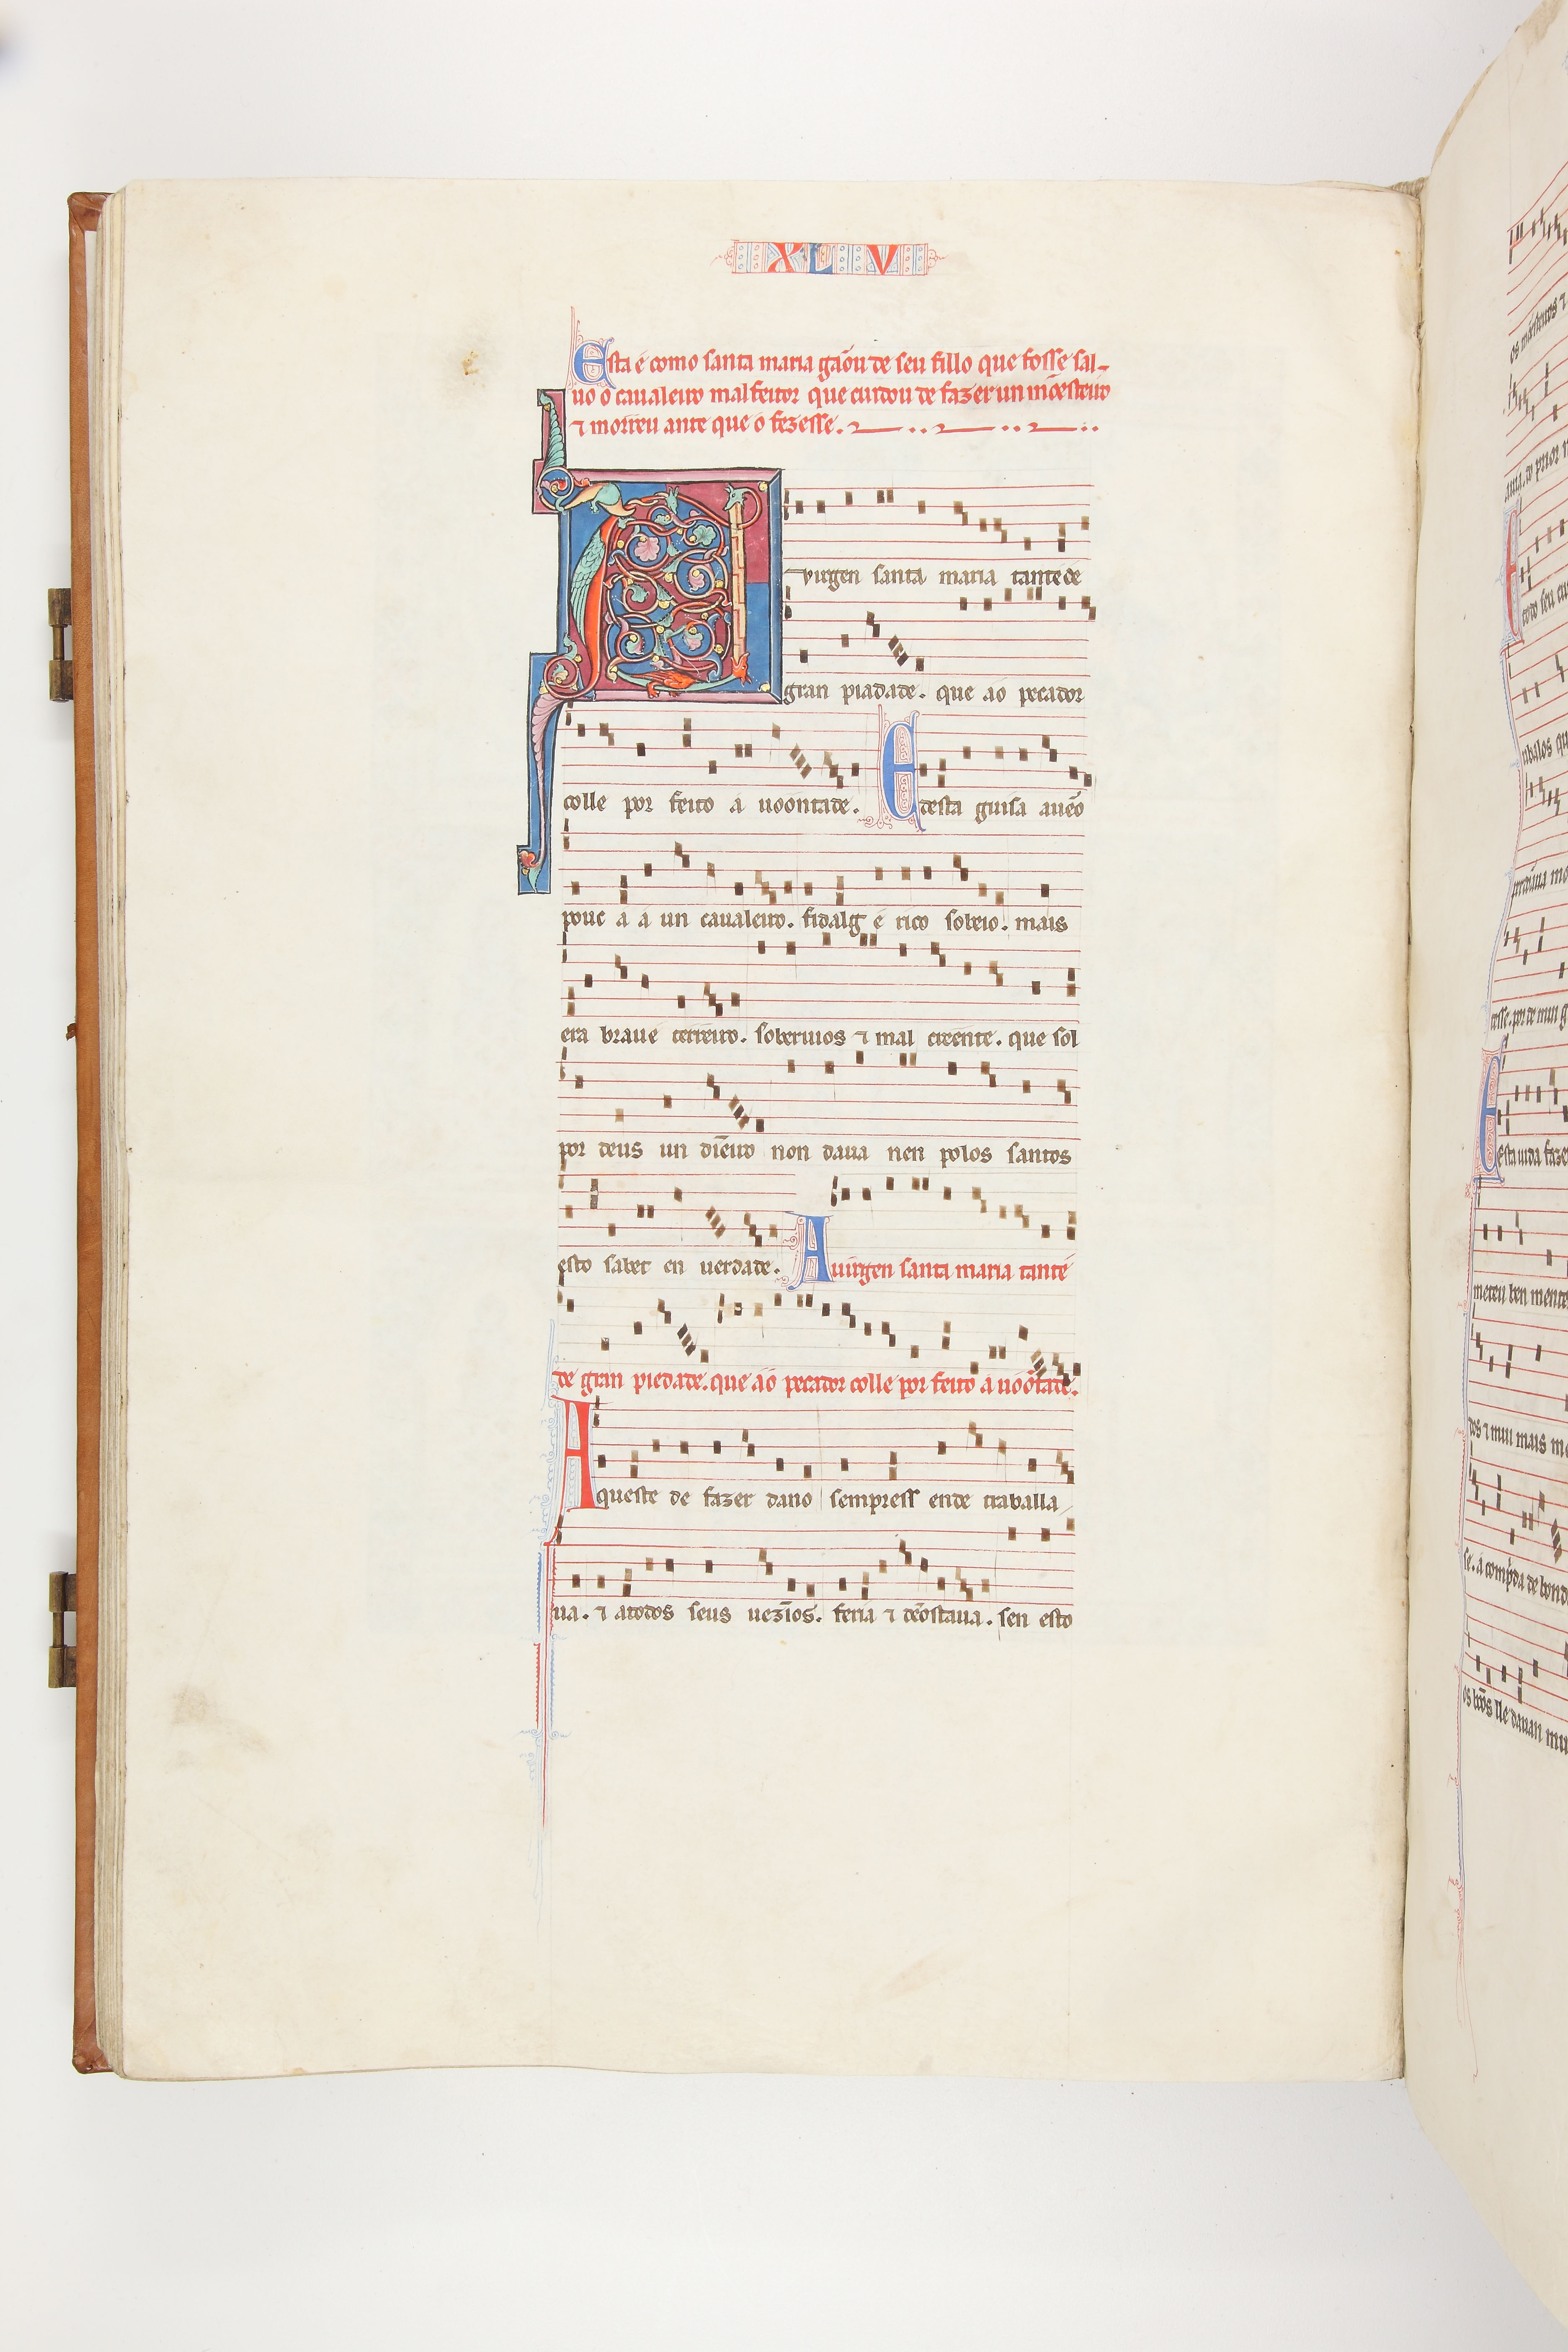 XLV
Esta é como santa maria gãou de seu fillo que fosse sal-
uo o caualeiro malfeitor que cuidou de fazer un mõesteiro
⁊ morreu ante que o fezesse.
A virgen santa maria tante de
gran piadade. que ao pecador
colle por feito a uoontade. E desta guisa auẽo
pouc a a un caualeiro. fidalg é rico sobeio. mais
era braue terreiro. soberuios ⁊ mal creente. que sol
por deus un dĩeiro non daua nen polos santos
esto saber en uerdade. A uirgen santa maria tante
de gran piedade. que áó pecador colle por feito a uoõtade.
Aqueste de fazer dano sempress ende traballa
ua. ⁊ atodos seus uezĩos. feria ⁊ dẽostaua. sen esto
os mõesteiros ⁊
todo seu cu
esta uida fazer
mereu ben mente
dos ⁊ mui mais me
se. a comprida de bond
os bẽes lle dauan mu